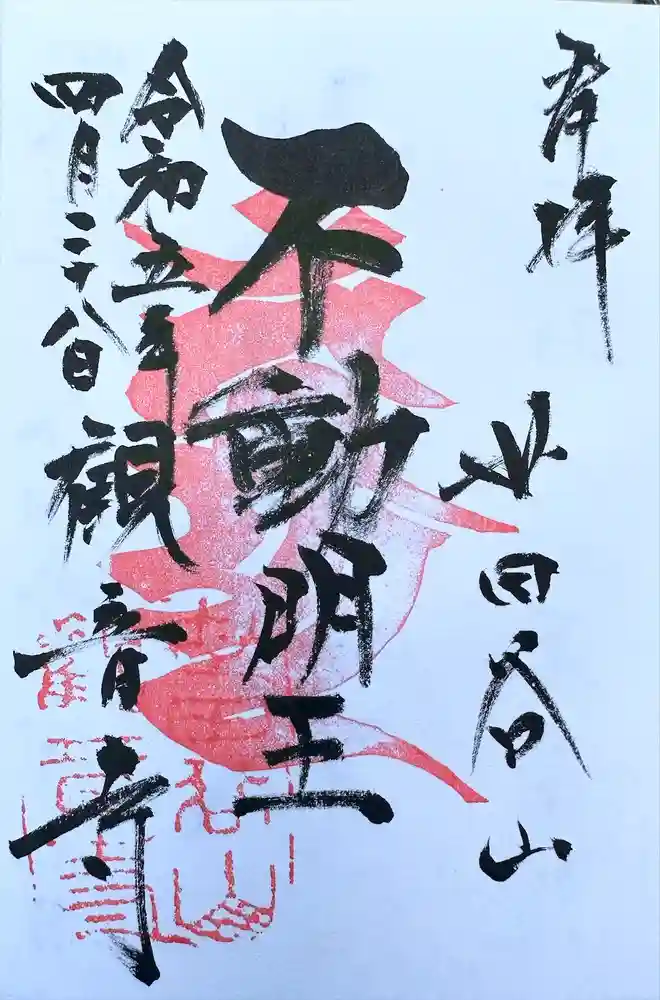 奉拝
世田谷山
不動明王
令和五年
四月二十八日
観音寺